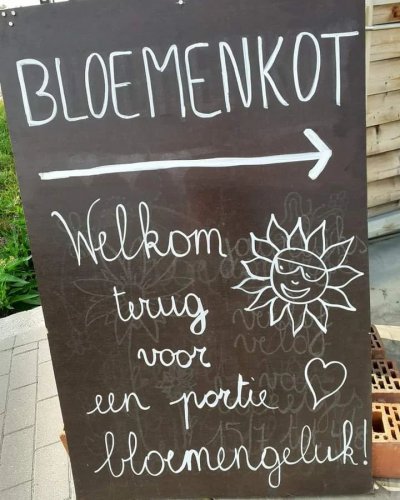 BLOEMENKOT
Welkom
terug
voor
een portie
bloemengeluk!